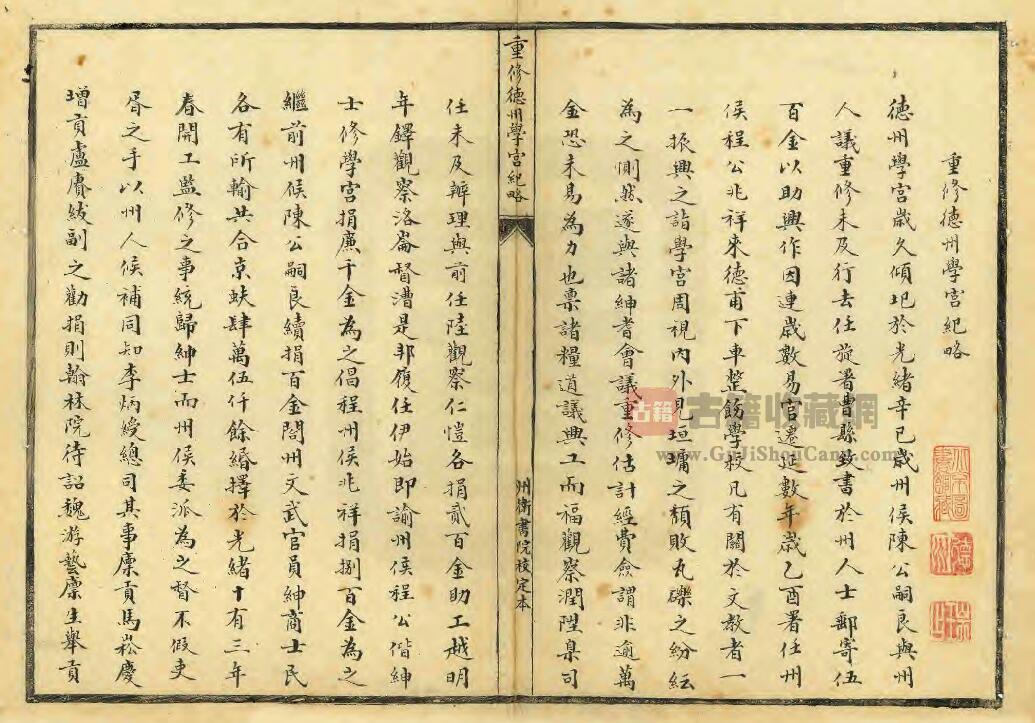 重修德州學宮紀略
德州學宮歲久傾圯於光緒辛巳歲州侯陳公嗣良與州
人議重修未及行去任旋署曹縣致書於州人士郵寄伍
百金以助興作因連歲數易官遷延數年歲乙酉署任州
侯程公兆祥來德甫下車整飭學校凡有關於文教者一
一振興之詣學宮周視內外見垣墉之頹敗瓦礫之紛紜
為之惻然遂與諸紳耆會議重修估計經費僉謂非逾萬
金恐未易為力也稟諸糧道議興工而福觀察潤陞臬司
重修德州學宮紀略
州衛書院校定本
任未及辦理與前任陸觀察仁愷各捐貳百金助工越明
年鐸觀察洛崙督漕是邦履任伊始即諭州侯程公偕紳
士修學宮捐廉千金為之倡程州侯兆祥捐捌百金為之
繼前州侯陳公嗣良續捐百金閤州文武官員紳商士民
各有所輸共合京蚨肆萬伍仟餘緡擇於光緒十有三年
春開工監修之事統歸紳士而州侯委派為之督不假吏
胥之手以州人候補同知李炳綬總司其事廩貢馬崧慶
增貢盧賡紱副之勸捐則翰林院待詔魏游藝廩生舉貢
古籍 古籍收藏網
www.GuJiShouCang.com